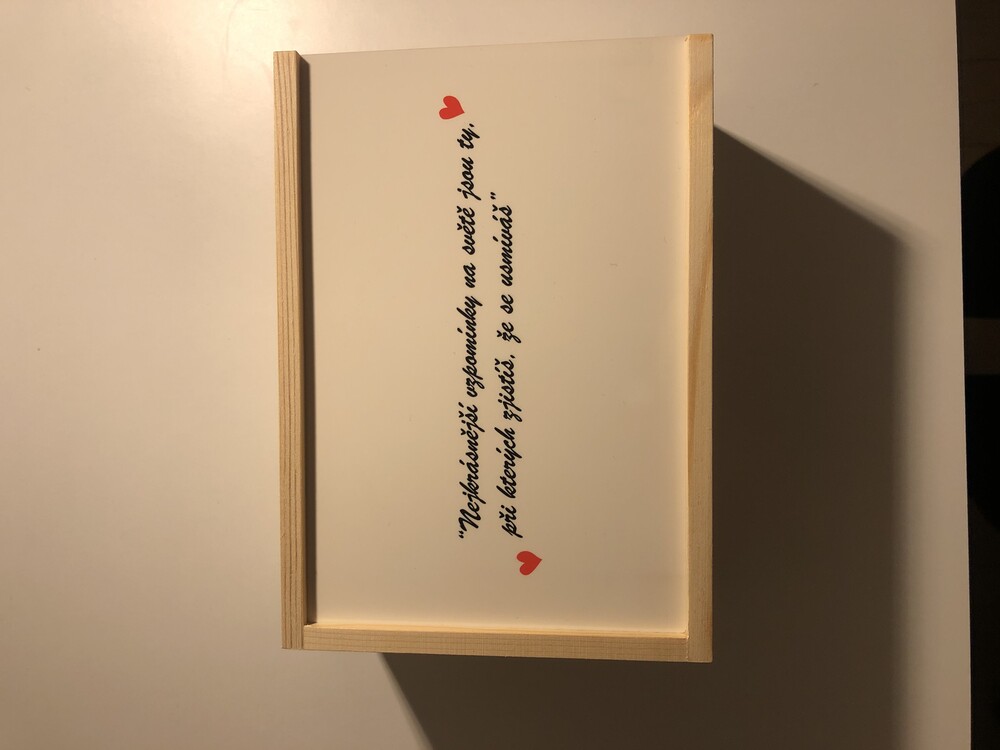 "Nejkrásnější vzpomínky na světě jsou ty,
při kterých zjistíš, že se usmíváš"